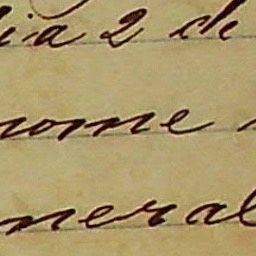 dia 2 de
nome
neral